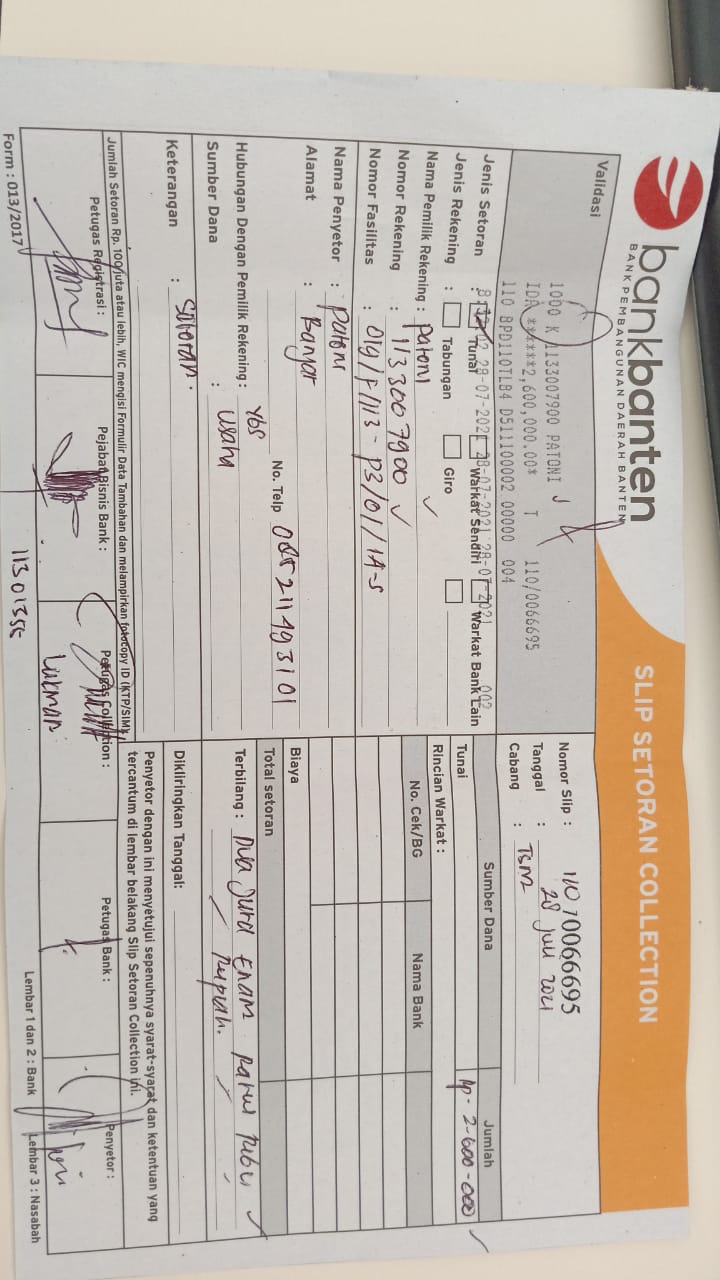 bankbanten
BANK PEMBANGUNAN DAERAH BANTEN
SLIP SETORAN COLLECTION
Validasi
1000 K 1133007900 PATONI
IDR ******2,600,000.00* T 110/0066695
110 BPD110TLB4 D511100002 00000 004
28-07-2021 28-07-2021 28-07-2021 002
Jenis Setoran : Tunai Warkat Sendiri Warkat Bank Lain
Jenis Rekening : Tabungan Giro
Nama Pemilik Rekening : Patoni
Nomor Rekening : 1133007900
Nomor Fasilitas :
Nama Penyetor : Patoni
Alamat : Banjar
No. Telp 085211493101
Hubungan Dengan Pemilik Rekening : Ybs
Sumber Dana : Usaha
Keterangan : Setoran.
Nomor Slip : 110 / 0066695
Tanggal : 28 Juli 2021
Cabang : TSM
Sumber Dana Jumlah
Tunai Rp. 2-600-000
Rincian Warkat :
No. Cek/BG Nama Bank
Biaya
Total setoran
Terbilang : Dua Juta Enam Ratus Ribu
Rupiah.
Dikliringkan Tanggal:
Jumlah Setoran Rp. 100 juta atau lebih, WIC mengisi Formulir Data Tambahan dan melampirkan fotocopy ID (KTP/SIM).
Penyetor dengan ini menyetujui sepenuhnya syarat-syarat dan ketentuan yang
tercantum di lembar belakang Slip Setoran Collection ini.
Petugas Registrasi :
Pejabat Bisnis Bank :
Petugas Collection :
Lukman
Petugas Bank :
Penyetor :
Form : 013/2017
Lembar 1 dan 2 : Bank Lembar 3 : Nasabah